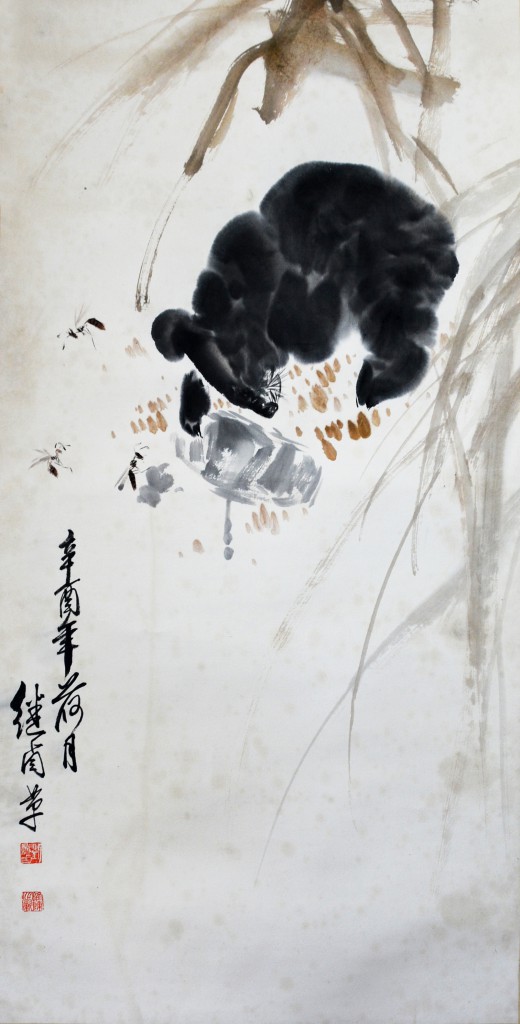 辛酉年荷月
继卣草